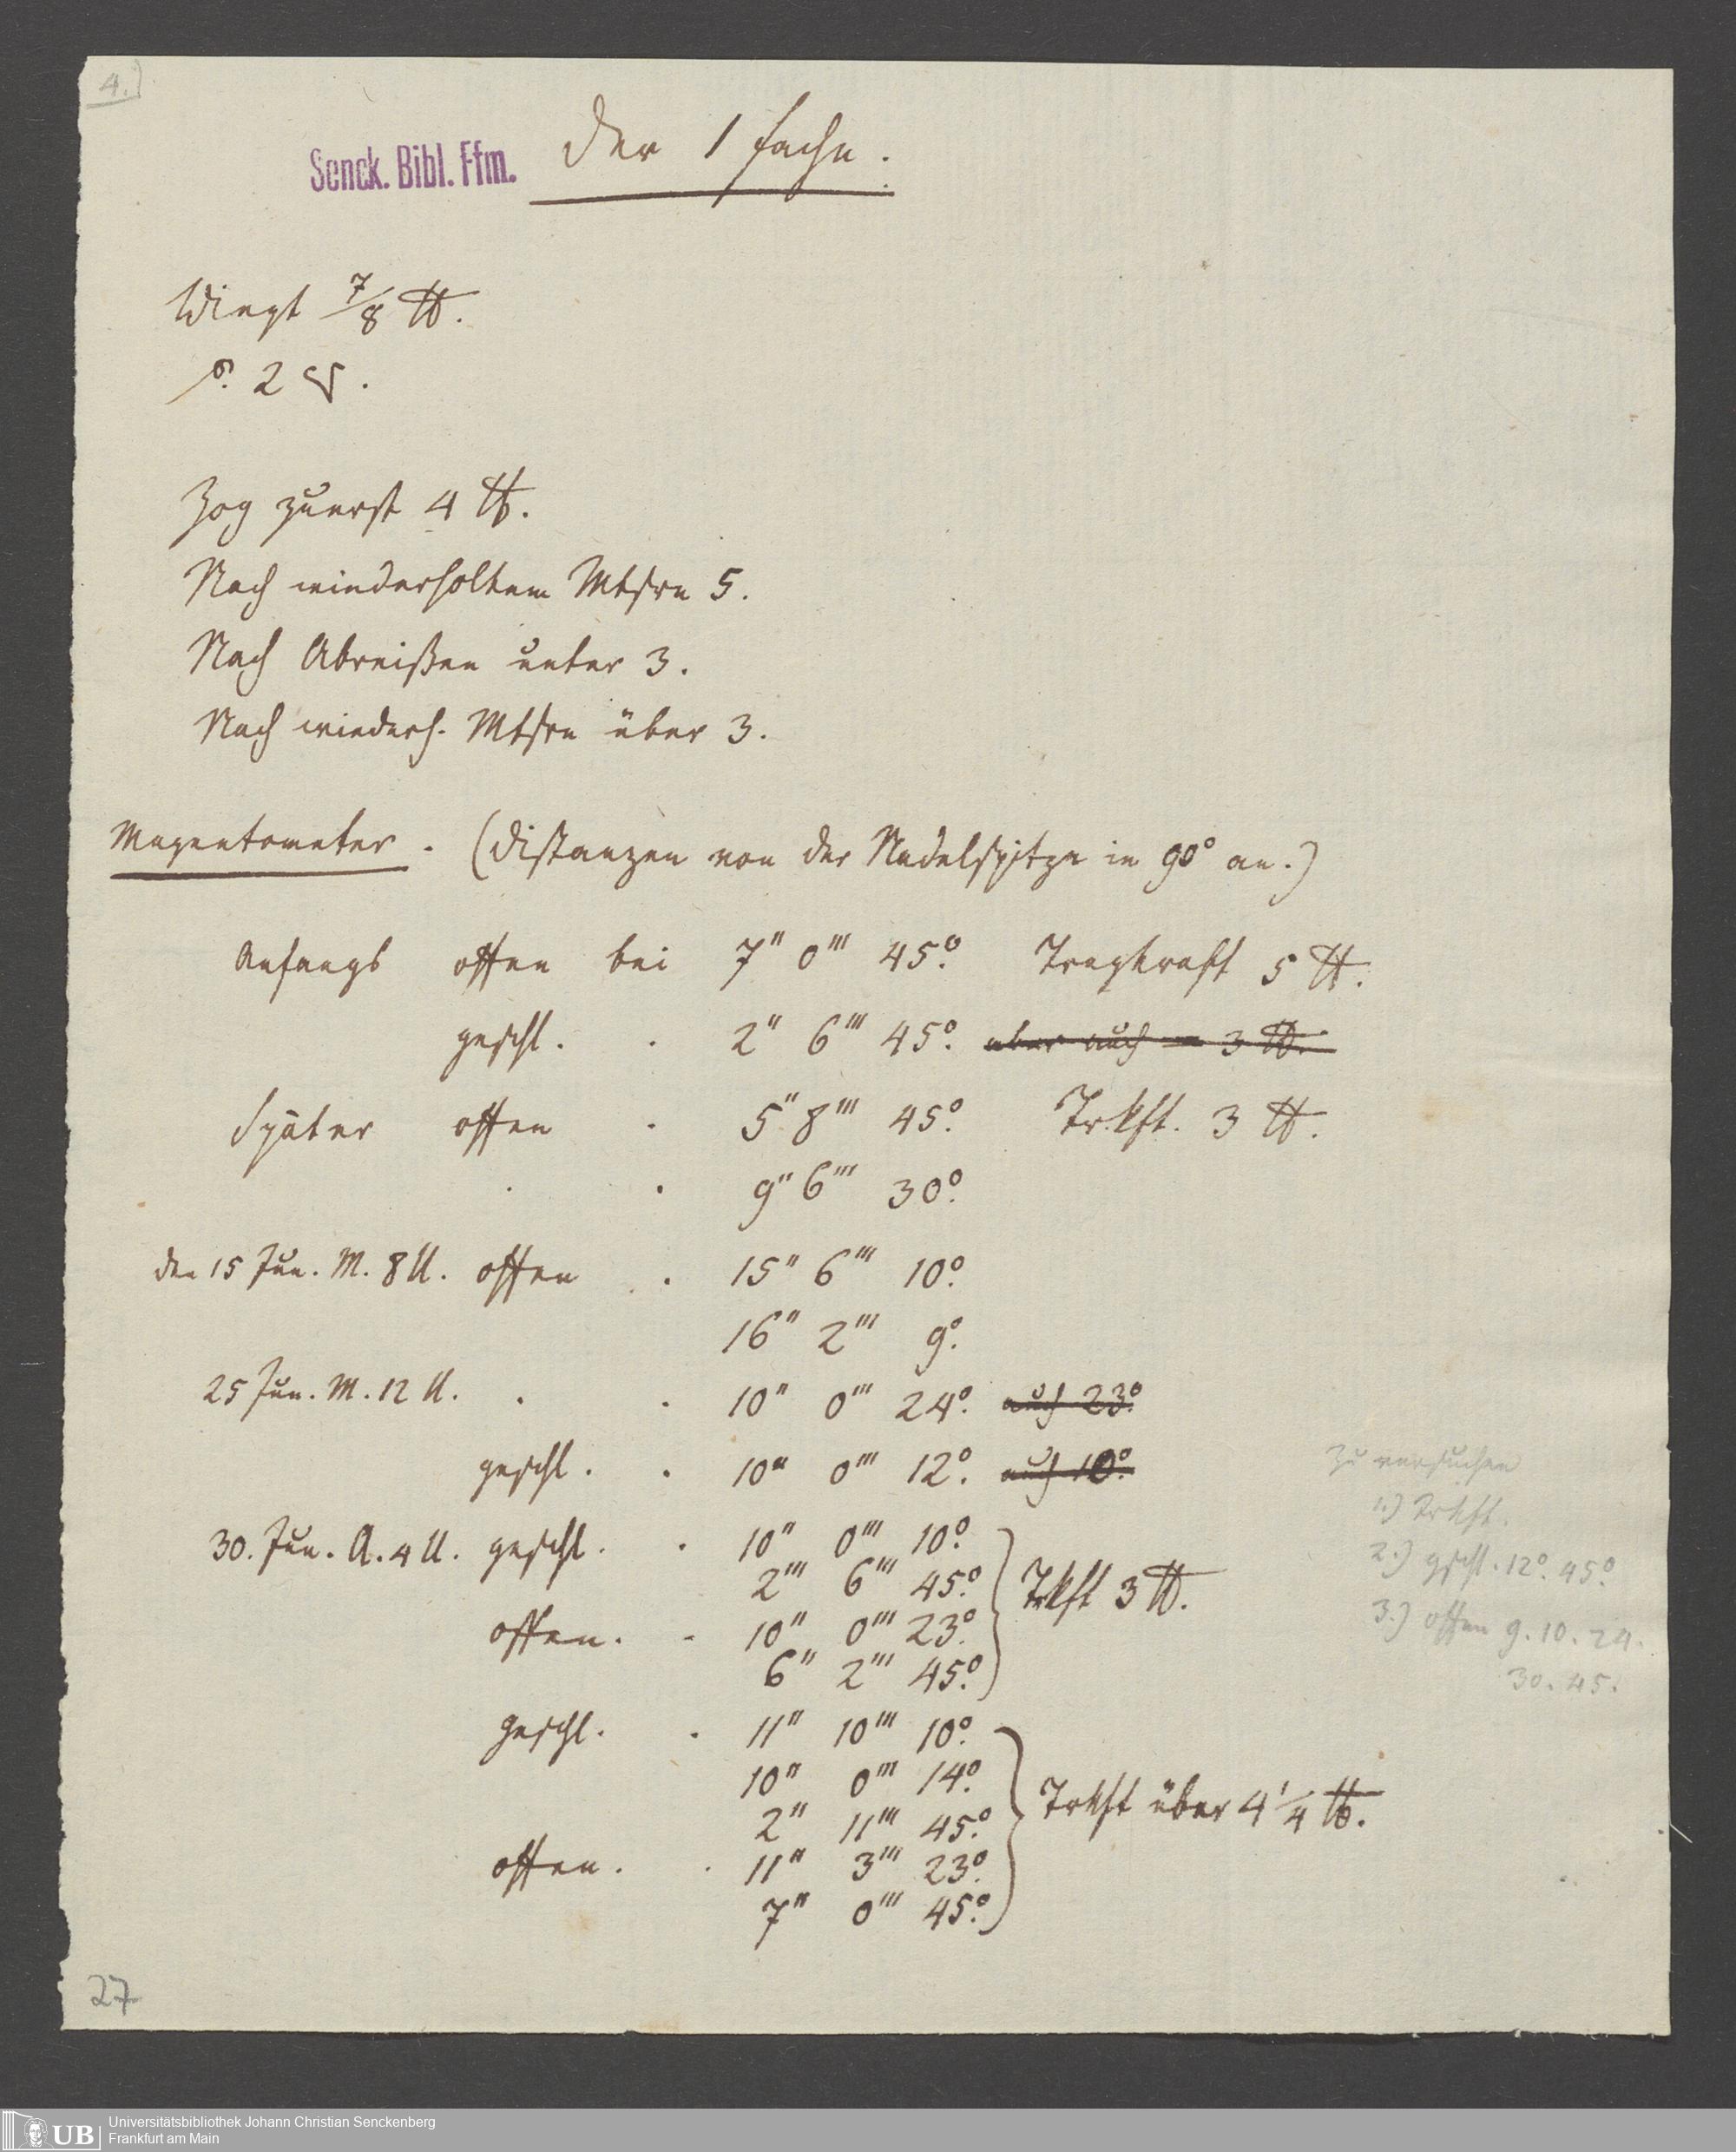 4.)
Senck. Bibl. Ffm.
Der 1 fache.
Wiegt 7/8 ℔.
2
Zog zuerst 4 ℔.
Nach wiederholtem Mtsrn 5.
Nach Abreißen unter 3.
Nach wiederh. Mtsrn über 3.
Magnetometer. (Distanzen von der Nadelspitze in 90° an.)
Anfangs offen bei 7" 0''' 45°. Tragkraft 5 ℔.
geschl. . 2" 6''' 45°. aber auch 3 ℔.
Später offen . 5" 8''' 45°. Tr.kft. 3 ℔.
. . 9" 6''' 30°.
den 15 Jun. M. 8 U. offen . 15" 6''' 10°.
16" 2''' 9°.
25 Jun. M. 12 U. . . 10" 0''' 24°. auch 23°.
geschl. . 10" 0''' 12°. auch 10°.
30. Jun. A. 4 U. geschl. . 10" 0''' 10°.
2''' 6''' 45°.
Trkft 3 ℔.
offen. . 10" 0''' 23°.
6" 2''' 45°.
geschl. . 11" 10''' 10°.
10" 0''' 14°.
2" 11''' 45°.
Trkft über 4 1/4 ℔.
offen. . 11" 3''' 23°.
7" 0''' 45°.
zu versuchen
1.) Trkft.
2.) gschl. 12°. 45°.
3.) offen 9. 10. 24.
30. 45.
27
UB
Universitätsbibliothek Johann Christian Senckenberg
Frankfurt am Main